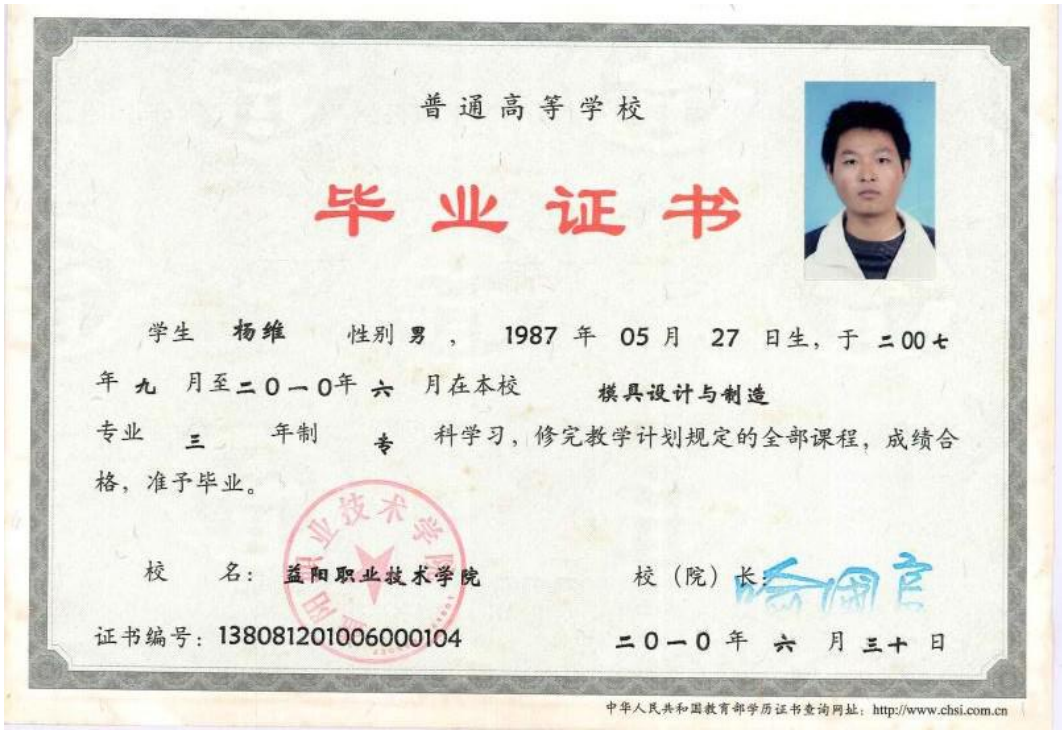 普通高等学校
毕业证书
学生 杨维 性别 男 ， 1987 年 05 月 27 日生，于 二00七
年 九 月至二0一0年 六 月在本校 模具设计与制造
专业 三 年制 专 科学习，修完教学计划规定的全部课程，成绩合
格，准予毕业。
校 名：益阳职业技术学院 校（院）长：
益阳职业技术学院
证书编号：138081201006000104 二0一0 年 六 月 三十 日
中华人民共和国教育部学历证书查询网址：http://www.chsi.com.cn